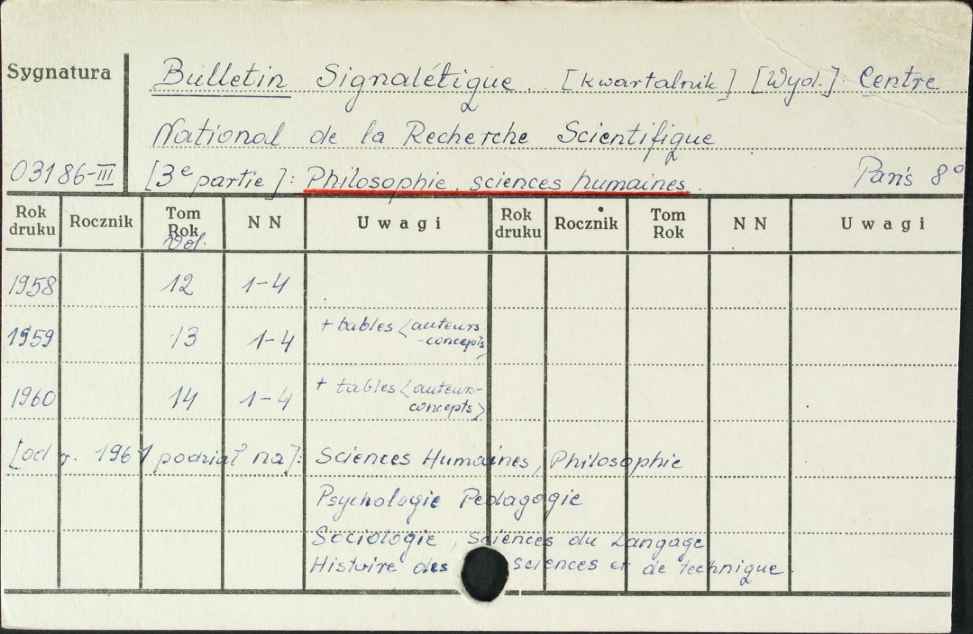 Sygnatura
Bulletin Signalétique. [kwartalnik] [Wyd.]: Centre
National de la Recherche Scientifique
03186-III [3e partie]: Philosophie, sciences humaines. Paris 8°
Rok druku Rocznik Tom Rok Vol. N N Uwagi Rok druku Rocznik Tom Rok N N Uwagi
1958 12 1-4
1959 13 1-4 + tables (auteurs
-concepts)
1960 14 1-4 + tables (auteurs-
concepts)
[od r. 1961 podział na]: Sciences Humaines, Philosophie
Psychologie Pedagogie
Sociologie, Sciences du Langage
Histoire des sciences et de technique.